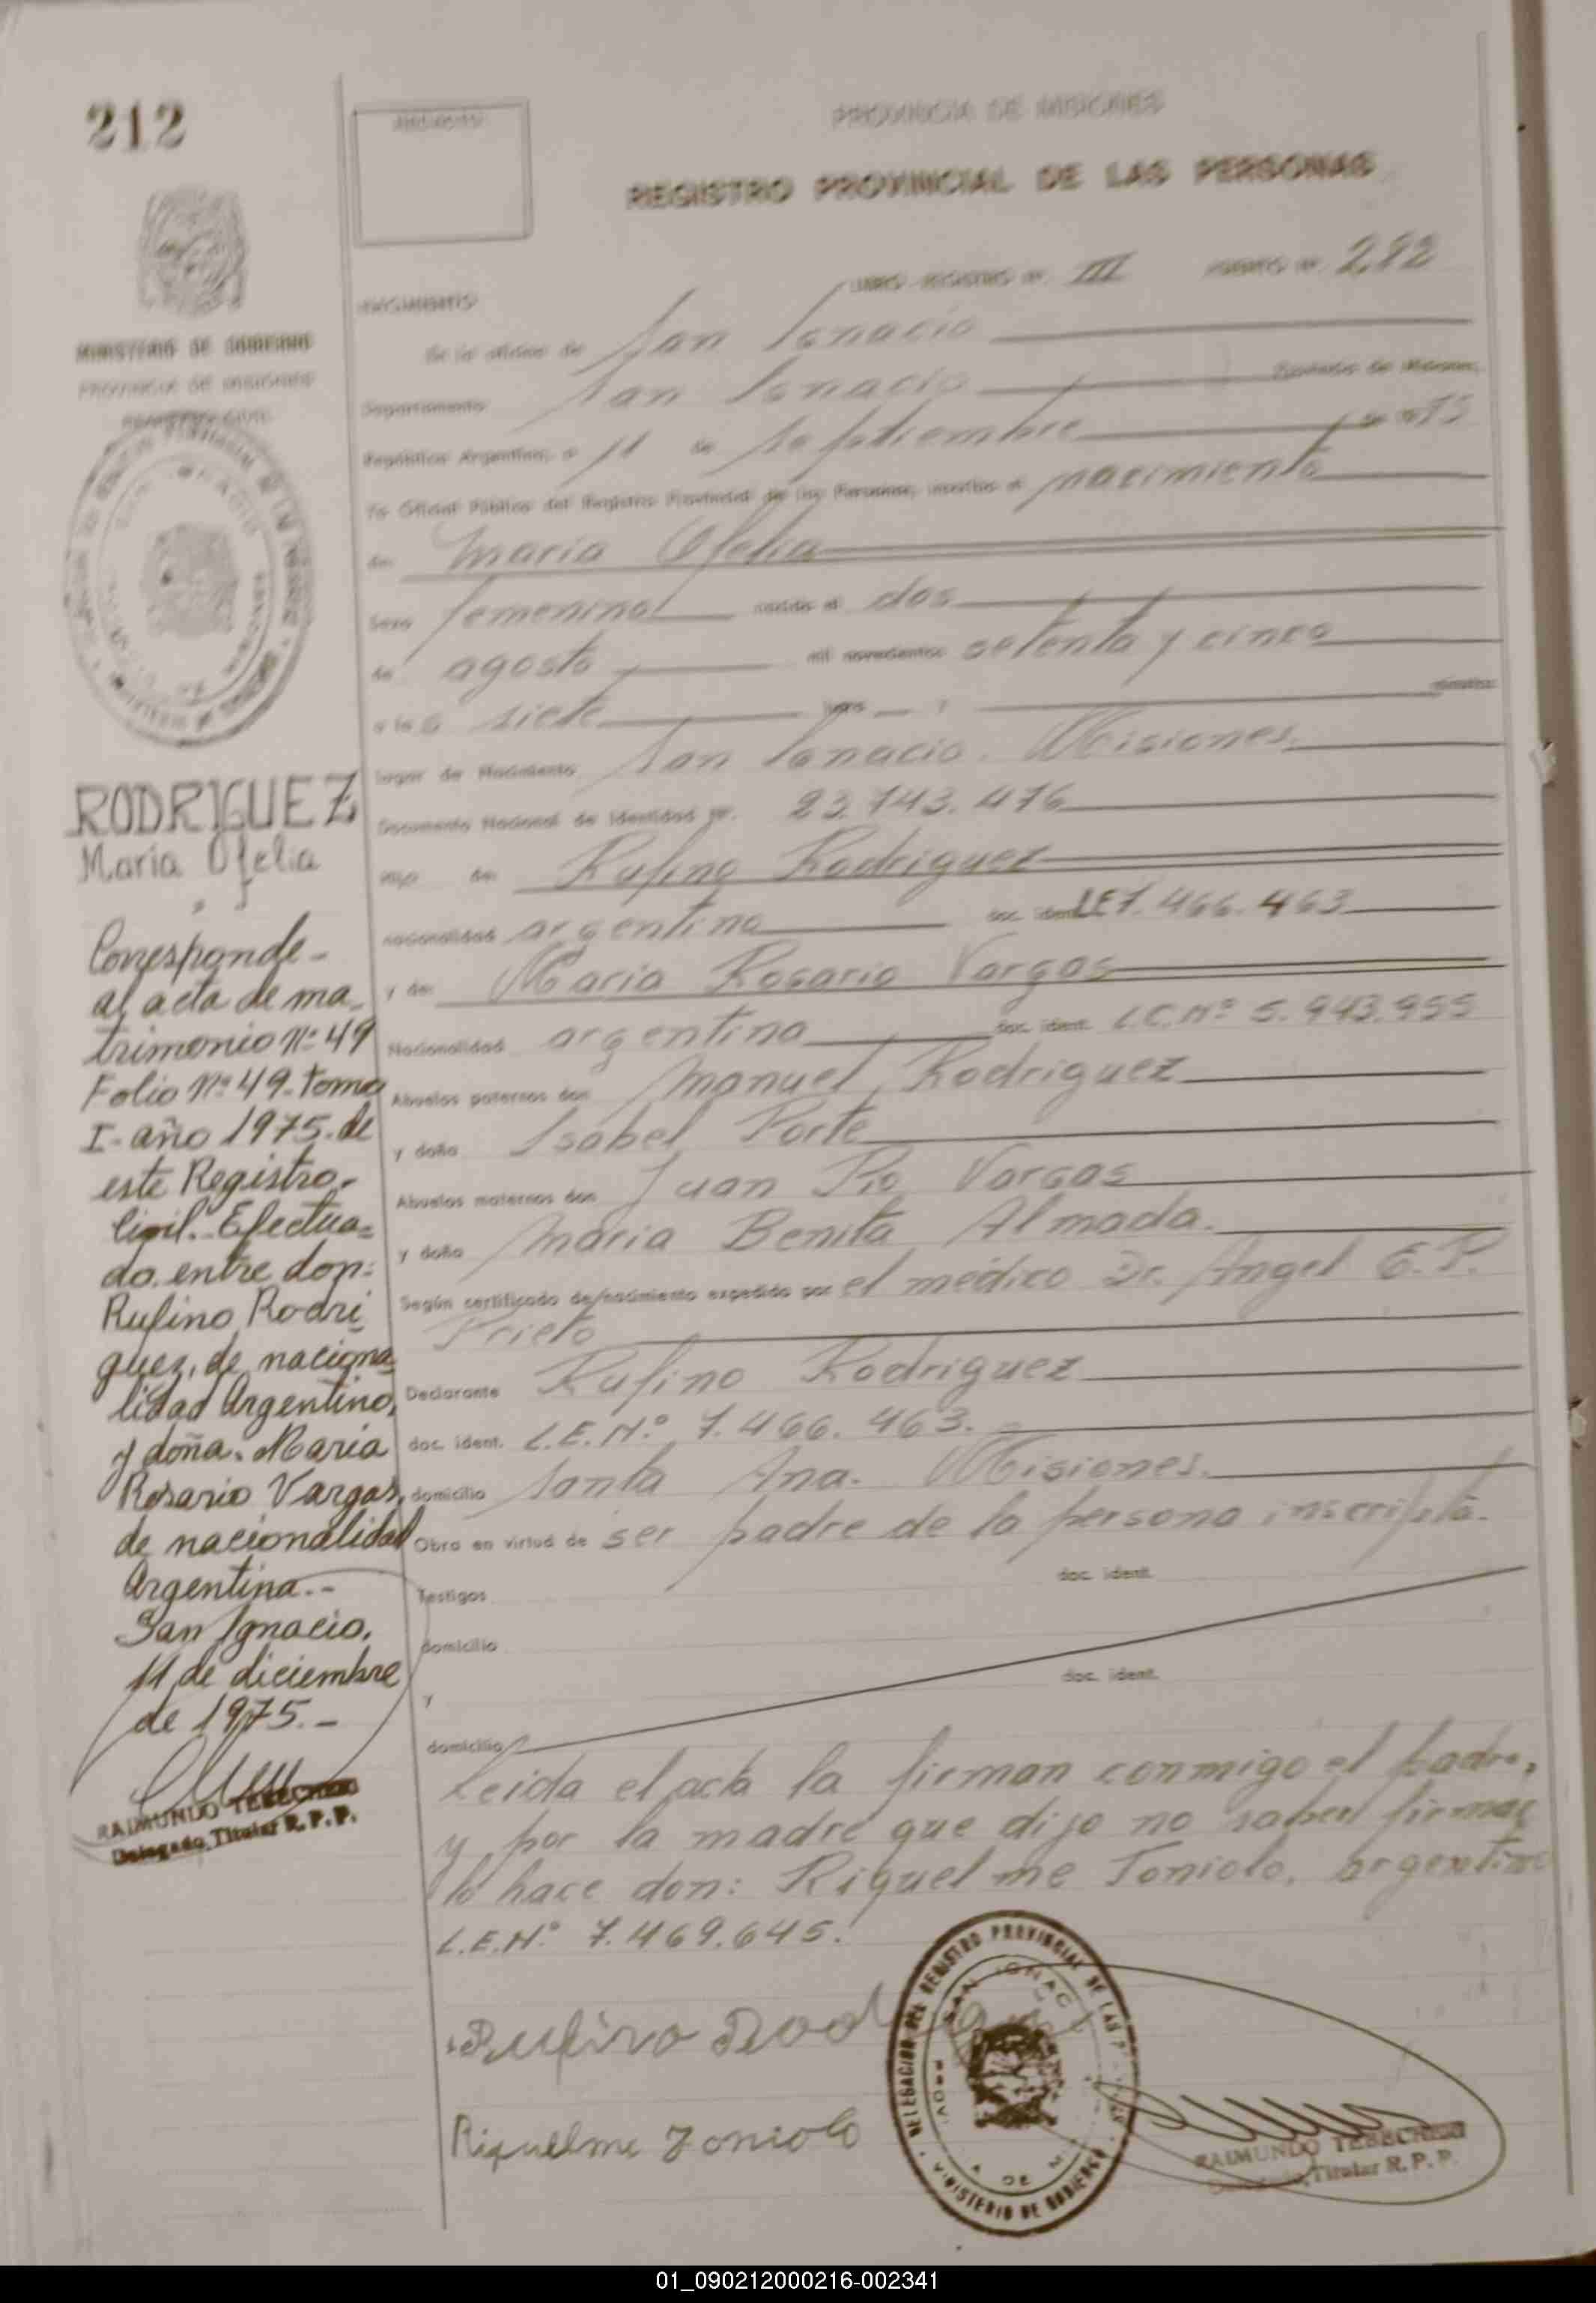 212
PROVINCIA DE MISIONES
REGISTRO PROVINCIAL DE LAS PERSONAS
LIBRO REGISTRO Nº III
NACIMIENTO
En la oficina de San Ignacio
Departamento San Ignacio Provincia de Misiones,
República Argentina, a 11 de Septiembre de 1975
Yo Oficial Público del Registro Provincial de las Personas, inscribo el nacimiento
de María Ofelia
Sexo femenino nacida el dos
de agosto mil novecientos setenta y cinco
a las siete horas y minutos
lugar de Nacimiento San Ignacio. Misiones.
Documento Nacional de Identidad Nº. 23.743.476
Hijo de Rufino Rodriguez
nacionalidad argentina doc. ident. LE 7.466.463
y de Maria Rosario Vargas
Nacionalidad argentina doc. ident. L.C.Nº 5.943.955
Abuelos paternos don Manuel Rodriguez
y doña Isabel Porte
Abuelos maternos don Juan Pío Vargas
y doña María Benita Almada.
Según certificado de nacimiento expedido por el médico Dr. Angel E.P.
Prieto
Declarante Rufino Rodriguez
doc. ident. L.E.Nº 7.466.463.
domicilio Santa Ana. Misiones.
Obra en virtud de ser padre de la persona inscripta.
Testigos doc. ident.
domicilio
y doc. ident.
domicilio
Leida el acta la firman conmigo el padre,
y por la madre que dijo no saber firmar
lo hace don: Riquelme Toniolo, argentino
L.E.Nº 7.469.645.
Rufino Rod
Riquelme Toniolo
RAIMUNDO
Titular R. P. P.
DELEGACION DEL REGISTRO PROVINCIAL DE LAS
SAN IGNAC
MINISTERIO DE GOBIERNO
MINISTERIO DE GOBIERNO
PROVINCIA DE MISIONES
RODRIGUEZ
María Ofelia
Corresponde-
al acta de ma-
trimonio Nº 49
Folio Nº 49. Tomo
I- año 1975. de
este Registro.
Civil. Efectua=
do. entre don:
Rufino Rodri
guez, de naciona
lidad Argentino,
y doña. Maria
Rosario Vargas,
de nacionalidad
Argentina.-
San Ignacio,
11 de diciembre
de 1975.-
RAIMUNDO
Delegado Titular R. P. P.
01_090212000216-002341